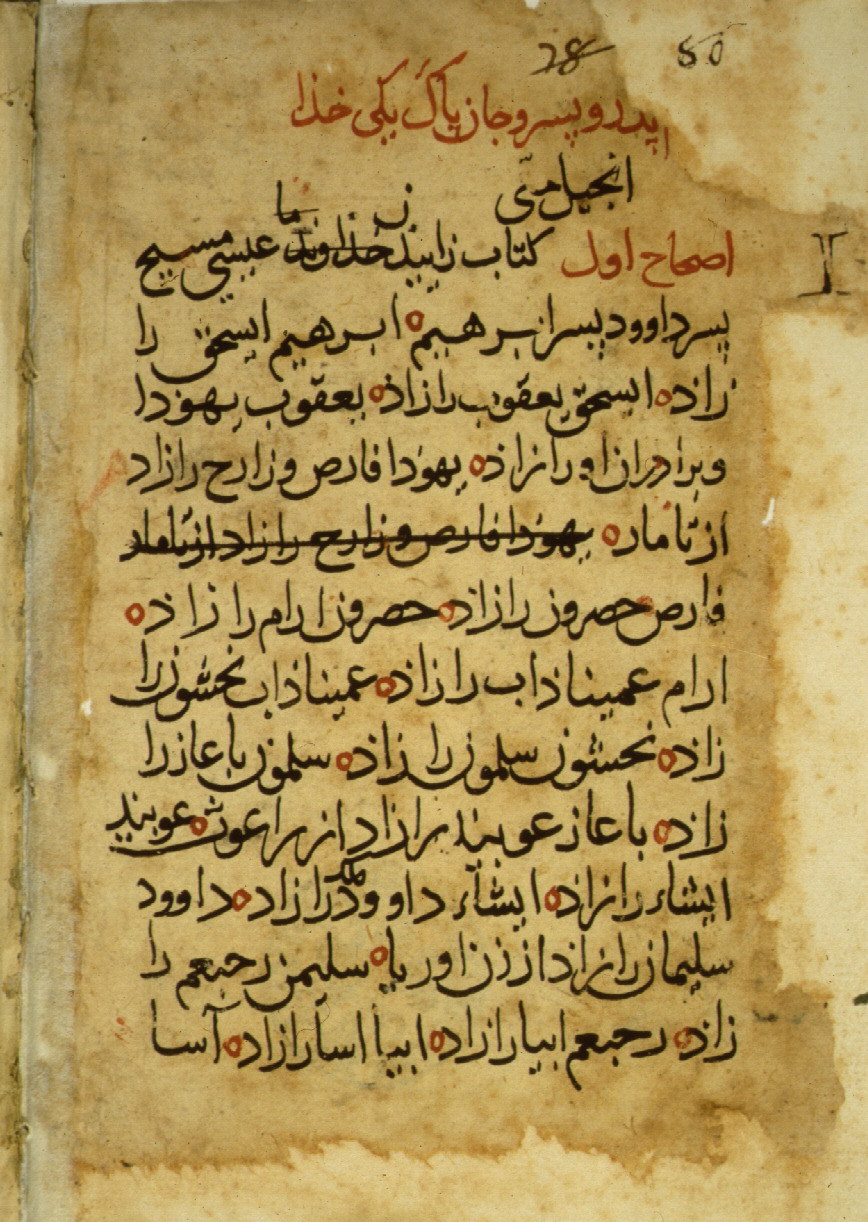 28 50
اپدر و پسر و جان پاک یکی خذا
انجیل متی
اصحاح اول کتاب زاییذن خذاوند ما عیسی مسیح
پسر داوود پسر ابرهیم ابرهیم اسحق را
زاذ اسحق یعقوب را زاذ یعقوب یهوذا
و براذران او را زاذ یهوذا فارص و زارح را زاد
از تامار یهوذا فارص و زارح را زاد از تامار
فارص حصرون را زاذ حصرون ارام را زاذ
ارام عمیناذاب را زاذ عمیناذاب نحشون را
زاذ نحشون سلمون را زاذ سلمون باعاز را
زاذ باعاز عوبید را زاد از راعوث عوبید
ایشاء را زاذ ایشآء داوود ملک را زاد داوود
سلیمان را زاد از زن اوریا سلیمن رحبعم را
زاذ رحبعم ابیا را زاد ابیا اسا را زاد آسا